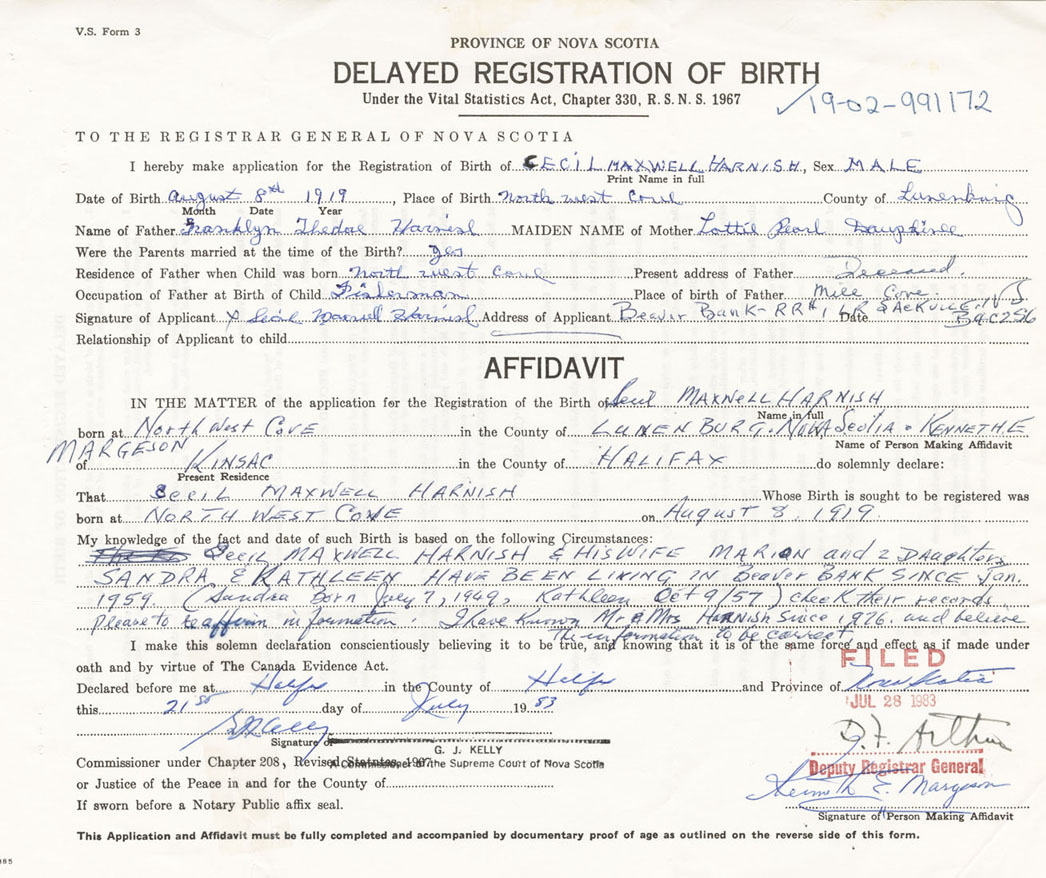 V.S. Form 3
PROVINCE OF NOVA SCOTIA
DELAYED REGISTRATION OF BIRTH
Under the Vital Statistics Act, Chapter 330, R. S. N. S. 1967
19-02-991172
TO THE REGISTRAR GENERAL OF NOVA SCOTIA
I hereby make application for the Registration of Birth of CECIL MAXWELL HARNISH, Sex MALE
Print Name in full
Date of Birth August 8th 1919, Place of Birth North west Cove County of Lunenburg
Month Date Year
Name of Father Franklyn Harnish MAIDEN NAME of Mother Lottie Pearl Dauphinee
Were the Parents married at the time of the Birth? yes
Residence of Father when Child was born North west Cove Present address of Father Deceased.
Occupation of Father at Birth of Child Fisherman Place of birth of Father Mill Cove. NS
Signature of Applicant X Cecil Maxwell Harnish Address of Applicant Beaver Bank - RR#1 SACKVILLE Date
Relationship of Applicant to child
AFFIDAVIT
IN THE MATTER of the application for the Registration of the Birth of Cecil MAXWELL HARNISH
Name in full
born at North West Cove in the County of LUNENBURG. NOVA Scotia - KENNETH E
Name of Person Making Affidavit
MARGESON
of KINSAC in the County of HALIFAX do solemnly declare:
Present Residence
That CECIL MAXWELL HARNISH Whose Birth is sought to be registered was
born at NORTH WEST COVE on August 8, 1919.
My knowledge of the fact and date of such Birth is based on the following Circumstances:
CECIL MAXWELL HARNISH & HIS WIFE MARION and 2 Daughters
SANDRA & KATHLEEN HAVE BEEN LIVING IN Beaver BANK SINCE Jan.
1959. (Sandra Born July 7, 1949, Kathleen Oct 9/57) check their records
Please to affirm information. I have known Mr & Mrs HARNISH since 1976. and believe
the information to be correct
I make this solemn declaration conscientiously believing it to be true, and knowing that it is of the same force and effect as if made under
oath and by virtue of The Canada Evidence Act.
FILED
Declared before me at Halifax in the County of Halifax and Province of Nova Scotia
JUL 28 1983
this 21st day of July 1983
D.F. Arthur
Signature of
G. J. KELLY
Deputy Registrar General
Commissioner under Chapter 208, Revised Statutes, 1967
A Commissioner of the Supreme Court of Nova Scotia
or Justice of the Peace in and for the County of
Kenneth E. Margeson
If sworn before a Notary Public affix seal.
Signature of Person Making Affidavit
This Application and Affidavit must be fully completed and accompanied by documentary proof of age as outlined on the reverse side of this form.